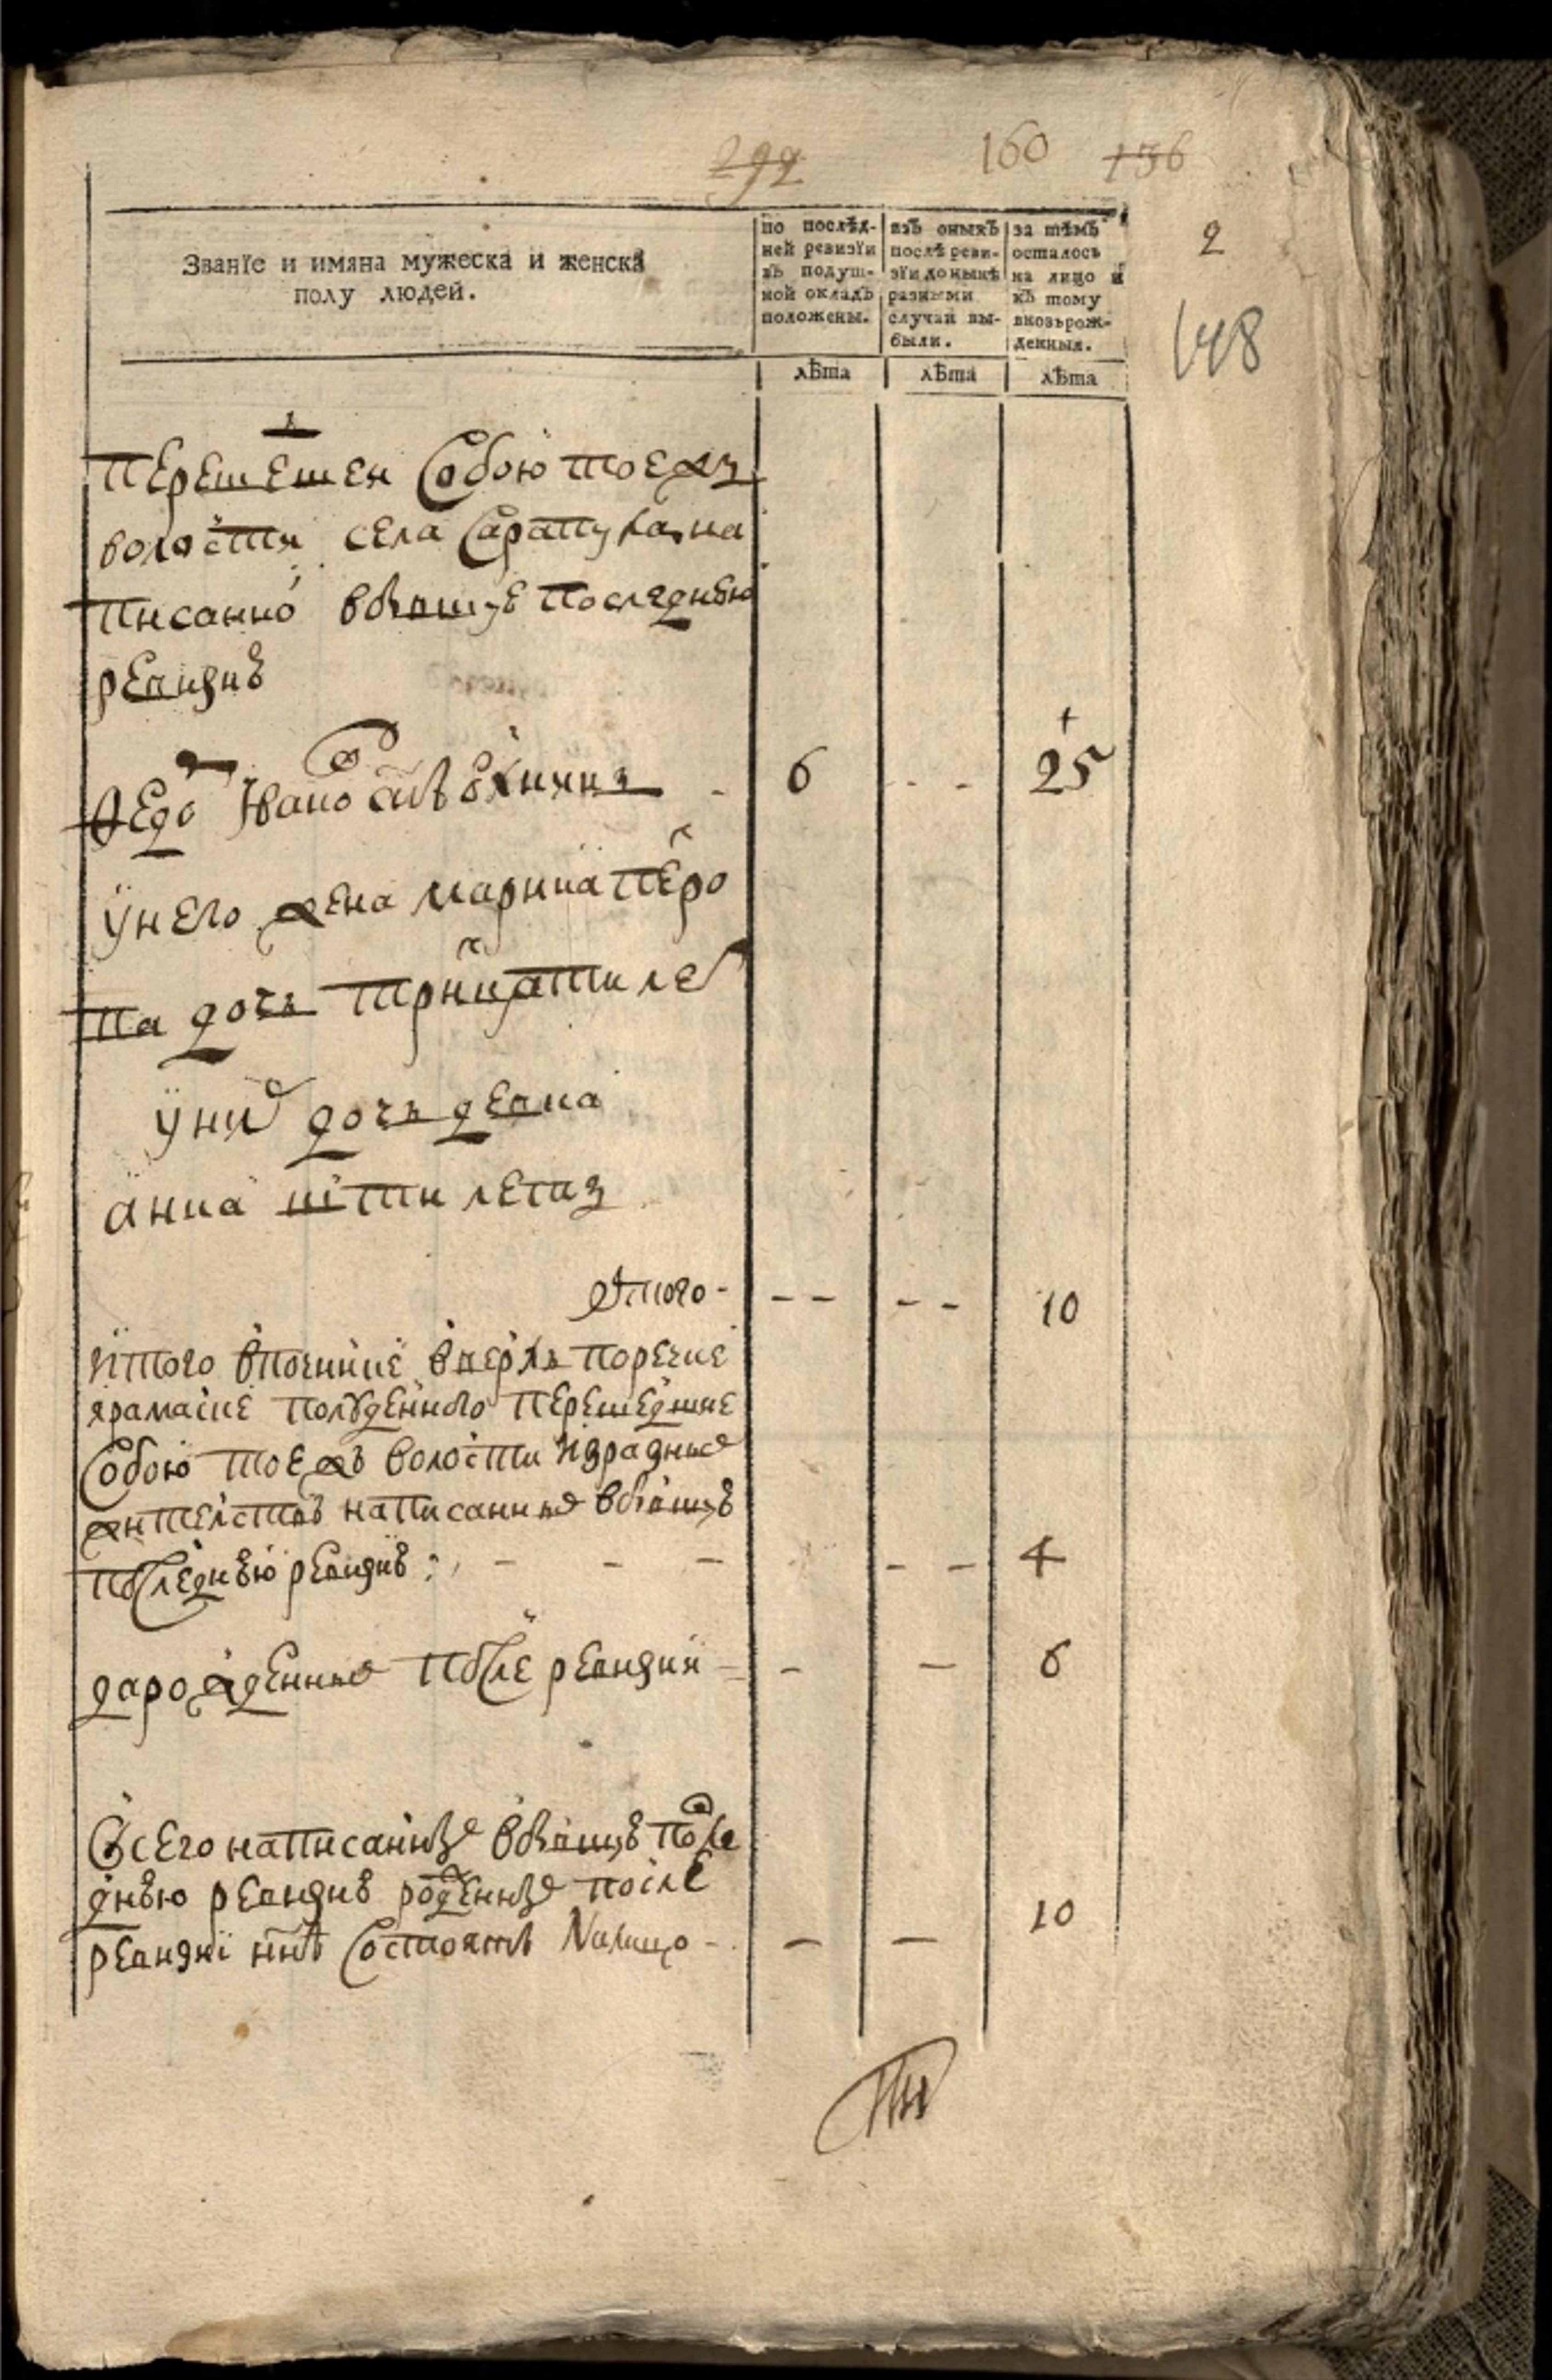 299 160 136
2
148
Званїе и имяна мужеска и женска
полу людей.
по послѣд-
ней ревизїи
въ подуш-
ной окладъ
положены.
изъ оныхъ
послѣ реви-
зїи до нынѣ
разными
случаи вы-
были.
за тѣмъ
осталось
на лицо и
къ тому
вновьрож-
денныя.
лѣта лѣта лѣта
перешешеи собою тоежъ
волости села Сарапула на
писанно вбывшую последнюю
ревизию
Ѳедо Ивано 6 25
у него жена марина петро
ва дочь тритцати лет
у них дочь девка
анна пяти летъ
Итого - -- -- 10
итого впочинке поречке
ярамаске полуденного перешедшие
собою тоежъ волости израдных
жителствъ написанные вбывшую
последнюю ревизию: - - - - - 4
зарожденные после ревизии - - - 6
Всего написанные вбывшую после
днюю ревизию рожденные после
ревизии ннѣ состоятъ налицо - - - 10